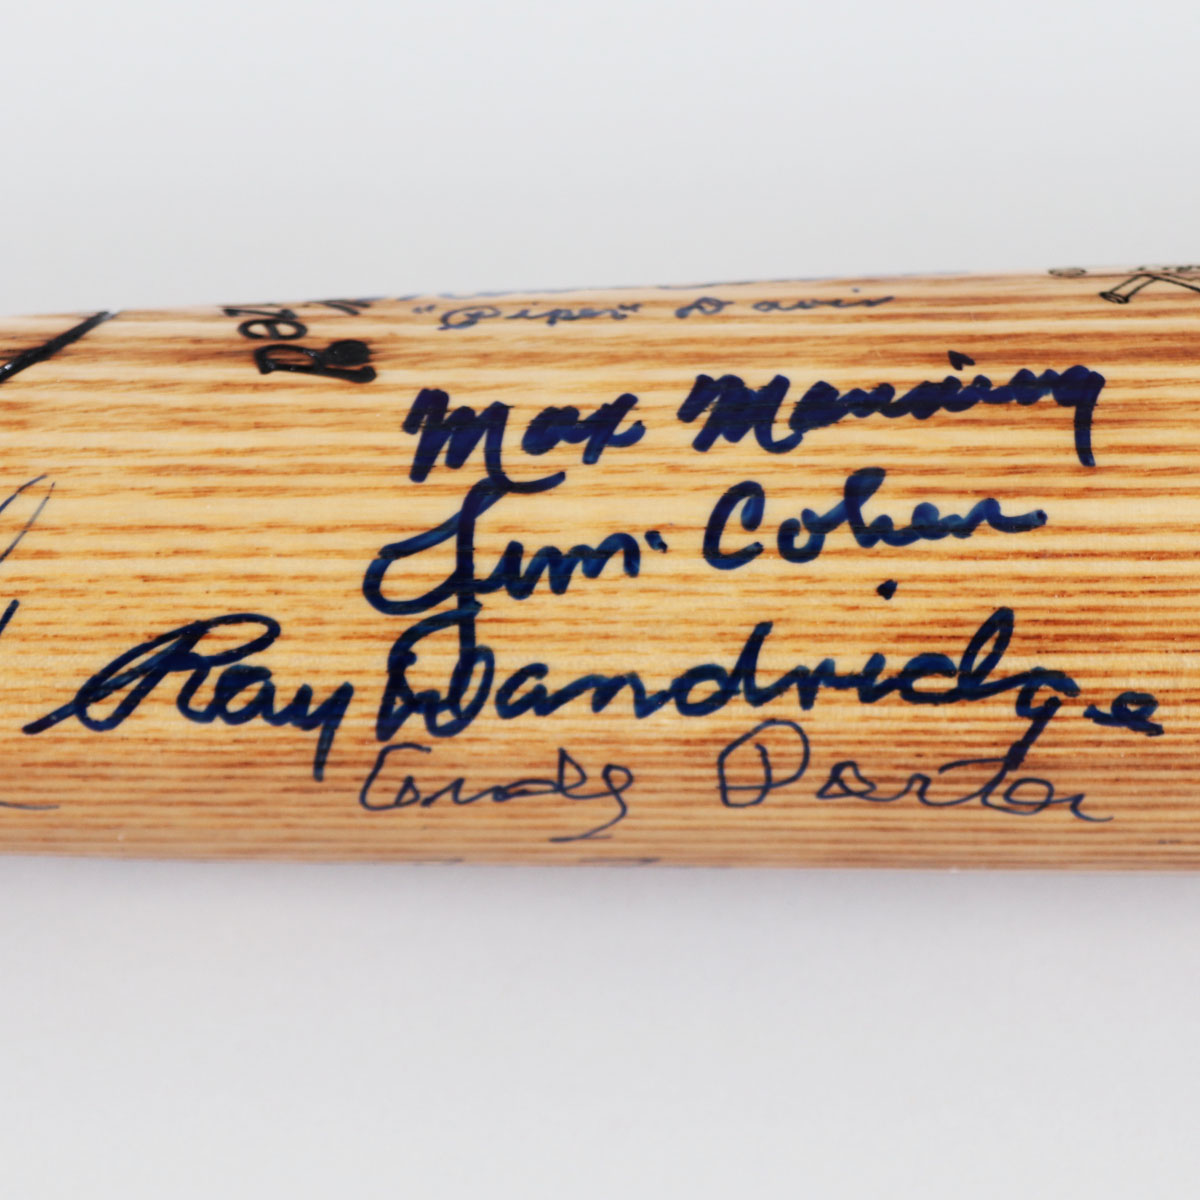 "Piper" Davis
Max Manning
Jim Cohen
Ray Dandridge
Andy Porter